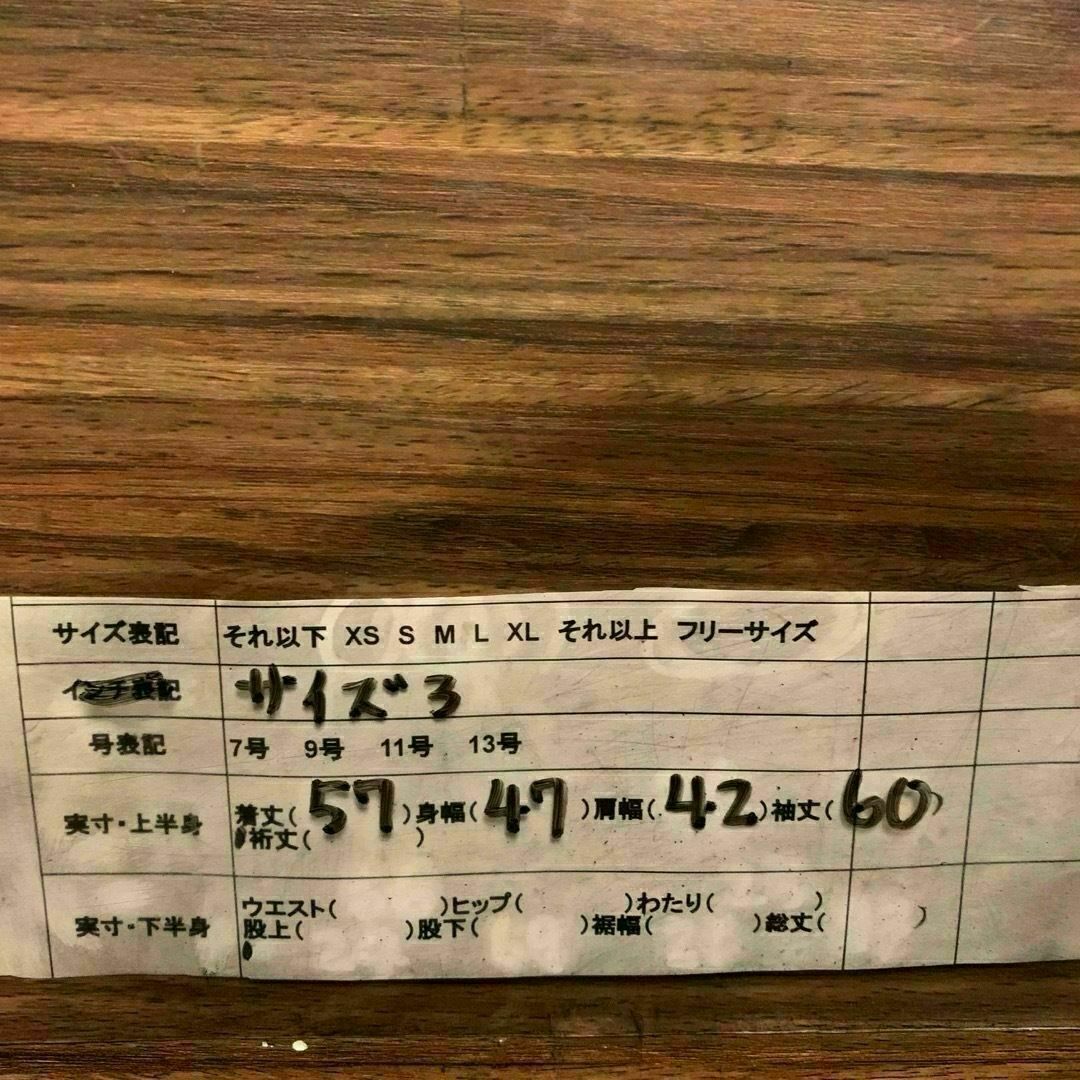 サイズ表記 それ以下 XS S M L XL それ以上 フリーサイズ
インチ表記 サイズ3
号表記 7号 9号 11号 13号
実寸・上半身 着丈(57)身幅(47)肩幅(42)袖丈(60)
裄丈( )
実寸・下半身 ウエスト( )ヒップ( )わたり( )
股上( )股下( )裾幅( )総丈( )